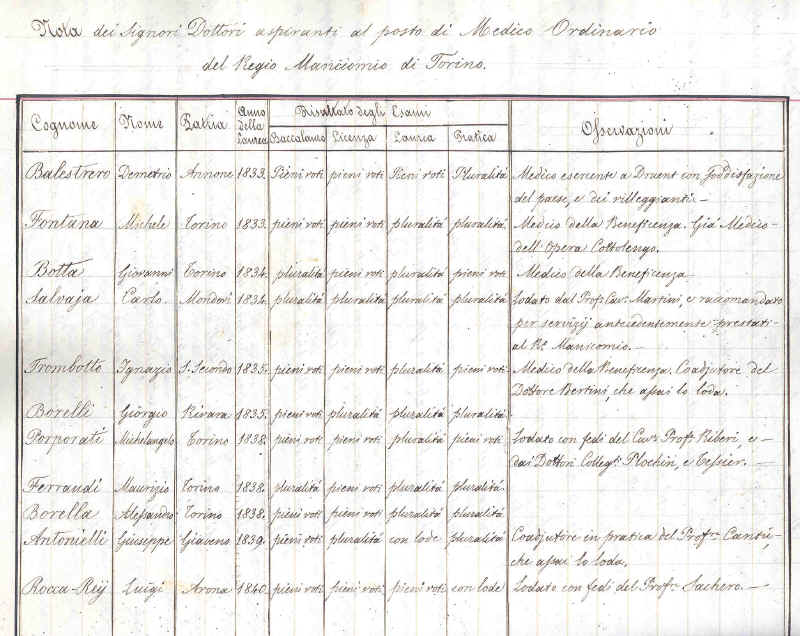 Nota dei Signori Dottori aspiranti al posto di Medico Ordinario
del Regio Manicomio di Torino.
Cognome Nome Patria Anno della Laurea Risultato degli Esami Osservazioni
Baccalaureo Licenza Laurea Pratica
Balestrero Demetrio Annone 1833. Pieni voti pieni voti Pieni voti Pluralità Medico esercente a Druent con soddisfazione
del paese, e dei villeggianti –
Fontana Michele Torino 1833. pieni voti pieni voti pluralità pluralità Medico della Beneficenza. Già Medico
dell'Opera Cottolengo.
Botta Giovanni Torino 1834. pluralità pieni voti pluralità pieni voti Medico della Beneficenza
Salvaja Carlo Mondovì 1834. pluralità pluralità pluralità pluralità Lodato dal Prof. Cav. Martini, e raccomandato
per servizij antecedentemente prestati
al Ro. Manicomio. –
Trombotto Ignazio S. Secondo 1835. pieni voti pieni voti pluralità pieni voti Medico della Beneficenza. Coadjutore del
Dottore Bertini, che assai lo loda.
Borelli Giorgio Rivara 1835. pieni voti pluralità pluralità pluralità
Porporati Michelangelo Torino 1838. pieni voti pieni voti pluralità pieni voti Lodato con fedi del Cav. Prof. Riberi, e –
dai Dottori Colleg. Plochiù, e Tessier. –
Ferraudi Maurizio Torino 1838. pluralità pieni voti pluralità pluralità.
Borella Alessandro Torino 1838. pieni voti pieni voti pluralità pluralità
Antonielli Giuseppe Giaveno 1839. pieni voti pluralità con lode pluralità Coadjutore in pratica del Prof. Cantù, –
che assai lo loda.
Rocca-Rey Luigi Arona 1840. pieni voti pieni voti pieni voti con lode Lodato con fedi del Prof. Sachero. –